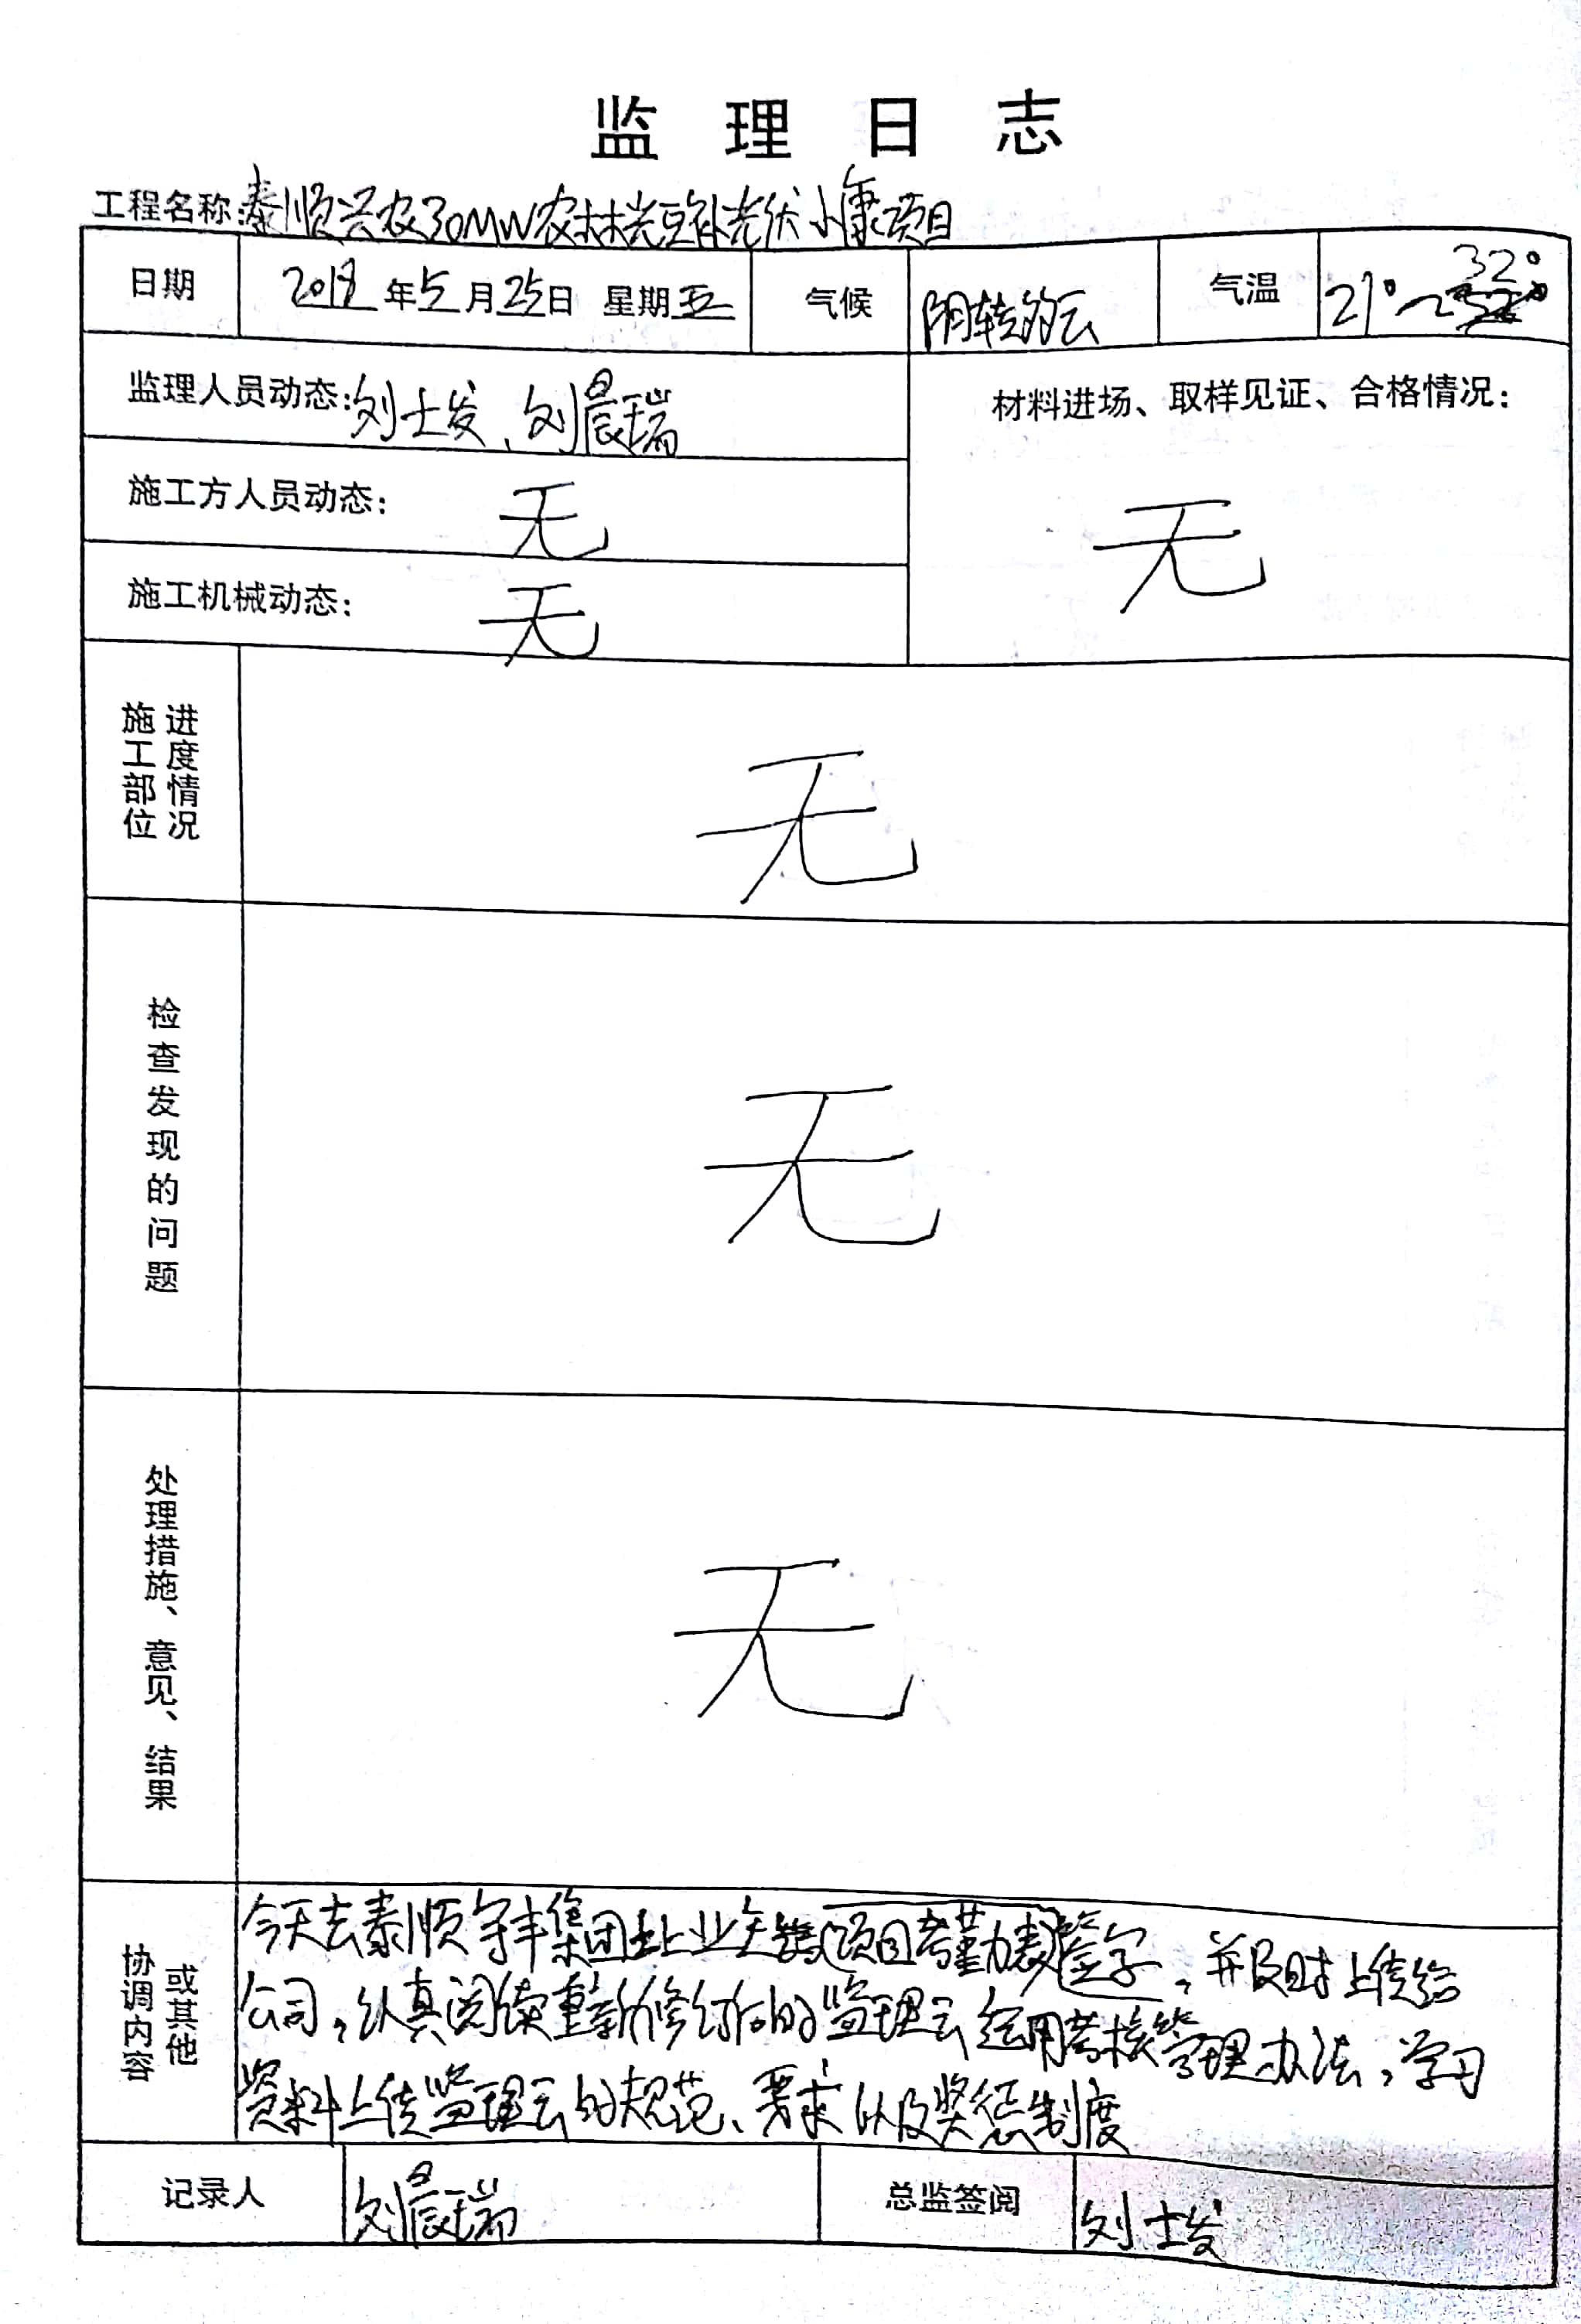 监理日志
工程名称:泰顺兴农30MW农林光互补光伏小康项目
日期 2018年5月25日 星期五 气候 阴转多云 气温 21°~32°
监理人员动态:刘士发、刘晨瑞 材料进场、取样见证、合格情况:
施工方人员动态: 无 无
施工机械动态: 无
施工部位 进度情况 无
检查发现的问题 无
处理措施、意见、结果 无
协调内容 或其他
今天去泰顺 丰集团 业主 项目考勤表签字,并及时上传给
公司,认真阅读重新修订后的监理云运用考核管理办法,学习
资料上传监理云的规范、要求以及奖惩制度
记录人 刘晨瑞 总监签阅 刘士发